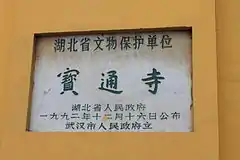 湖北省文物保护单位
寶通寺
湖北省人民政府
一九九二年十二月十六日公布
武汉市人民政府立